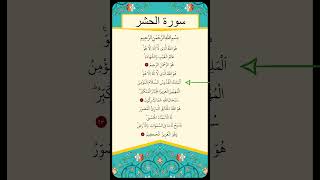 سورة الحشر
بِسْمِ اللَّهِ الرَّحْمَنِ الرَّحِيمِ
هُوَ اللَّهُ الَّذِي لَا إِلَهَ إِلَّا هُوَ
عَالِمُ الْغَيْبِ وَالشَّهَادَةِ
هُوَ الرَّحْمَنُ الرَّحِيمُ
هُوَ اللَّهُ الَّذِي لَا إِلَهَ إِلَّا هُوَ
الْمَلِكُ الْقُدُّوسُ السَّلَامُ الْمُؤْمِنُ
الْمُهَيْمِنُ الْعَزِيزُ الْجَبَّارُ الْمُتَكَبِّرُ
سُبْحَانَ اللَّهِ عَمَّا يُشْرِكُونَ
هُوَ اللَّهُ الْخَالِقُ الْبَارِئُ الْمُصَوِّرُ
لَهُ الْأَسْمَاءُ الْحُسْنَى
يُسَبِّحُ لَهُ مَا فِي السَّمَاوَاتِ وَالْأَرْضِ
وَهُوَ الْعَزِيزُ الْحَكِيمُ